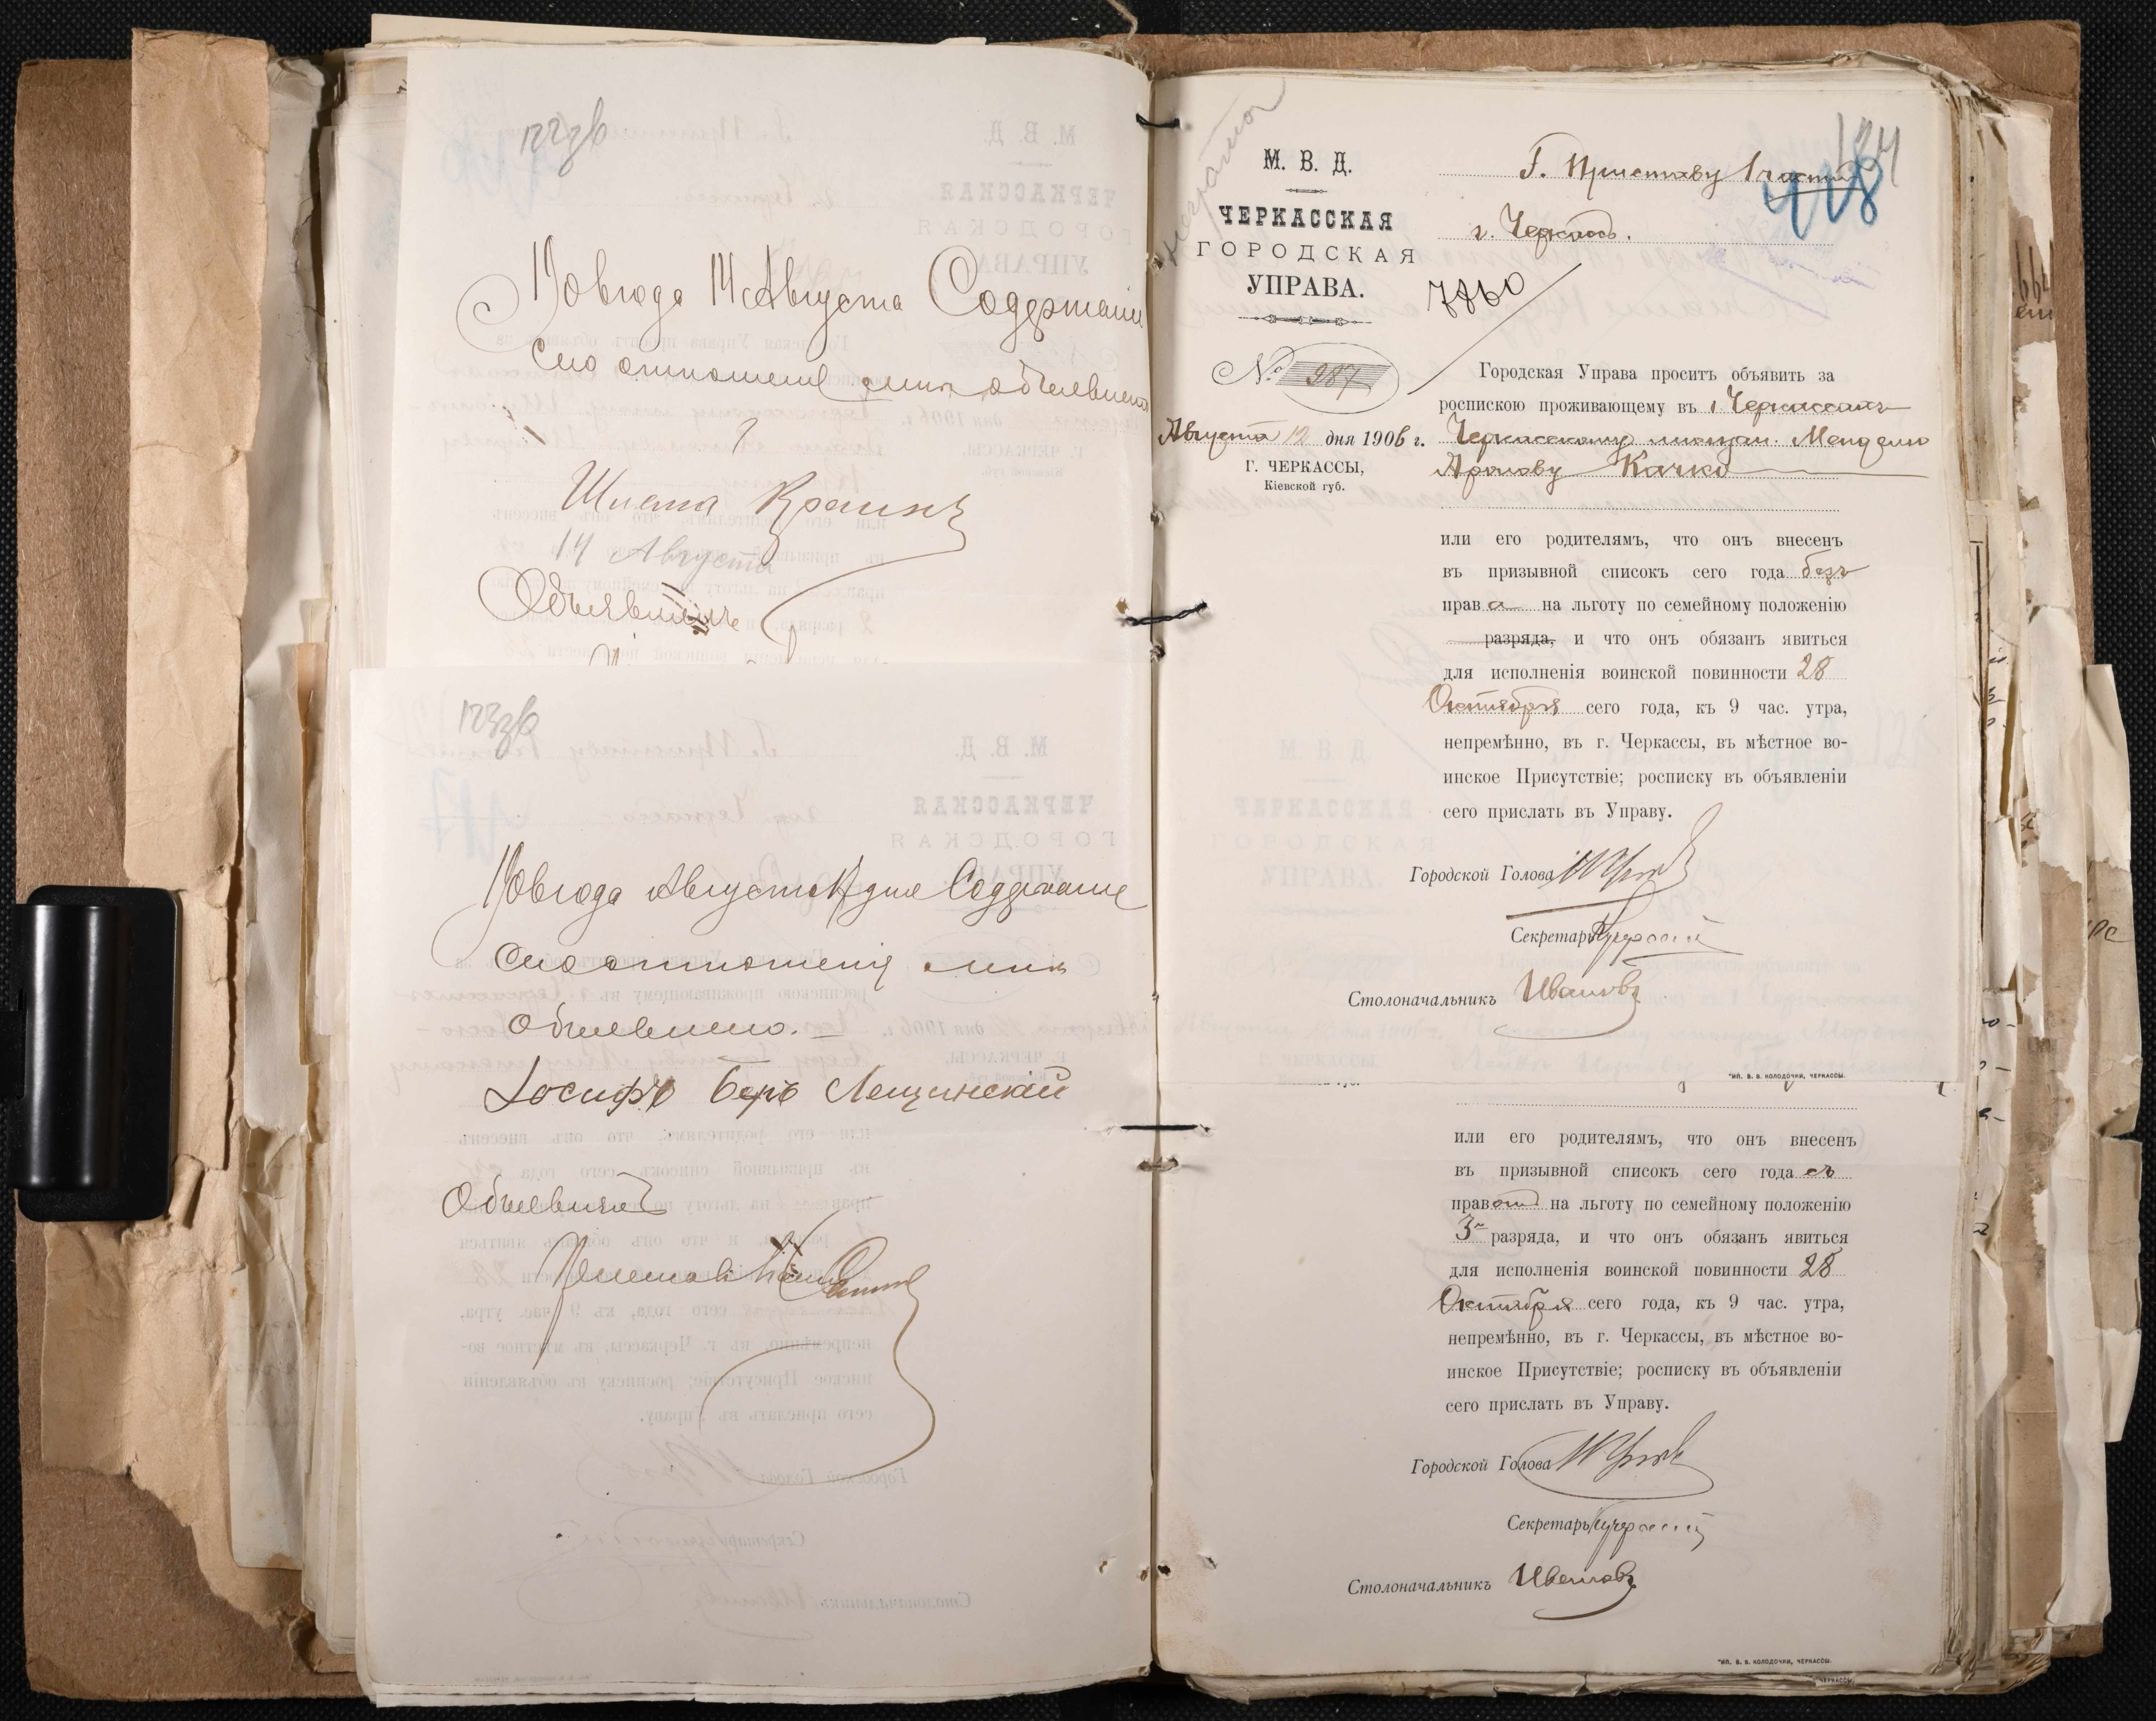 122зв
1906 года 14 Августа Содержание
сего отношения мнѣ объявлено
Шлема Краинъ
14 Августа
Объявилъ
123зв
1906 года Августа 14 дня Содержание
сего отношения мнѣ
Объявлено.
Іосифъ Беръ Лещинскій
Объявилъ
124
М. В. Д.
Г. Приставу 1 части
418
ЧЕРКАССКАЯ
г. Черкассъ.
ГОРОДСКАЯ
УПРАВА.
7860
№ 287
Городская Управа проситъ объявить за
роспискою проживающему въ г. Черкассахъ
Августа 12 дня 1906 г.
Черкасскому мещан. Менделю
Г. ЧЕРКАССЫ,
Кіевской губ.
Аронову Качко
или его родителямъ, что онъ внесенъ
въ призывной списокъ сего года безъ
права на льготу по семейному положенію
разряда, и что онъ обязанъ явиться
для исполненія воинской повинности 28
Октября сего года, къ 9 час. утра,
непремѣнно, въ г. Черкассы, въ мѣстное во-
инское Присутствіе; росписку въ объявленіи
сего прислать въ Управу.
Городской Голова
Секретарь
Столоначальникъ Ивановъ
ТИП. В. В. КОЛОДОЧКИ, ЧЕРКАССЫ.
или его родителямъ, что онъ внесенъ
въ призывной списокъ сего года съ
правомъ на льготу по семейному положенію
3го разряда, и что онъ обязанъ явиться
для исполненія воинской повинности 28
Октября сего года, къ 9 час. утра,
непремѣнно, въ г. Черкассы, въ мѣстное во-
инское Присутствіе; росписку въ объявленіи
сего прислать въ Управу.
Городской Голова
Секретарь
Столоначальникъ Ивановъ
ТИП. В. В. КОЛОДОЧКИ, ЧЕРКАССЫ.
ЧЕРКАССЫ.